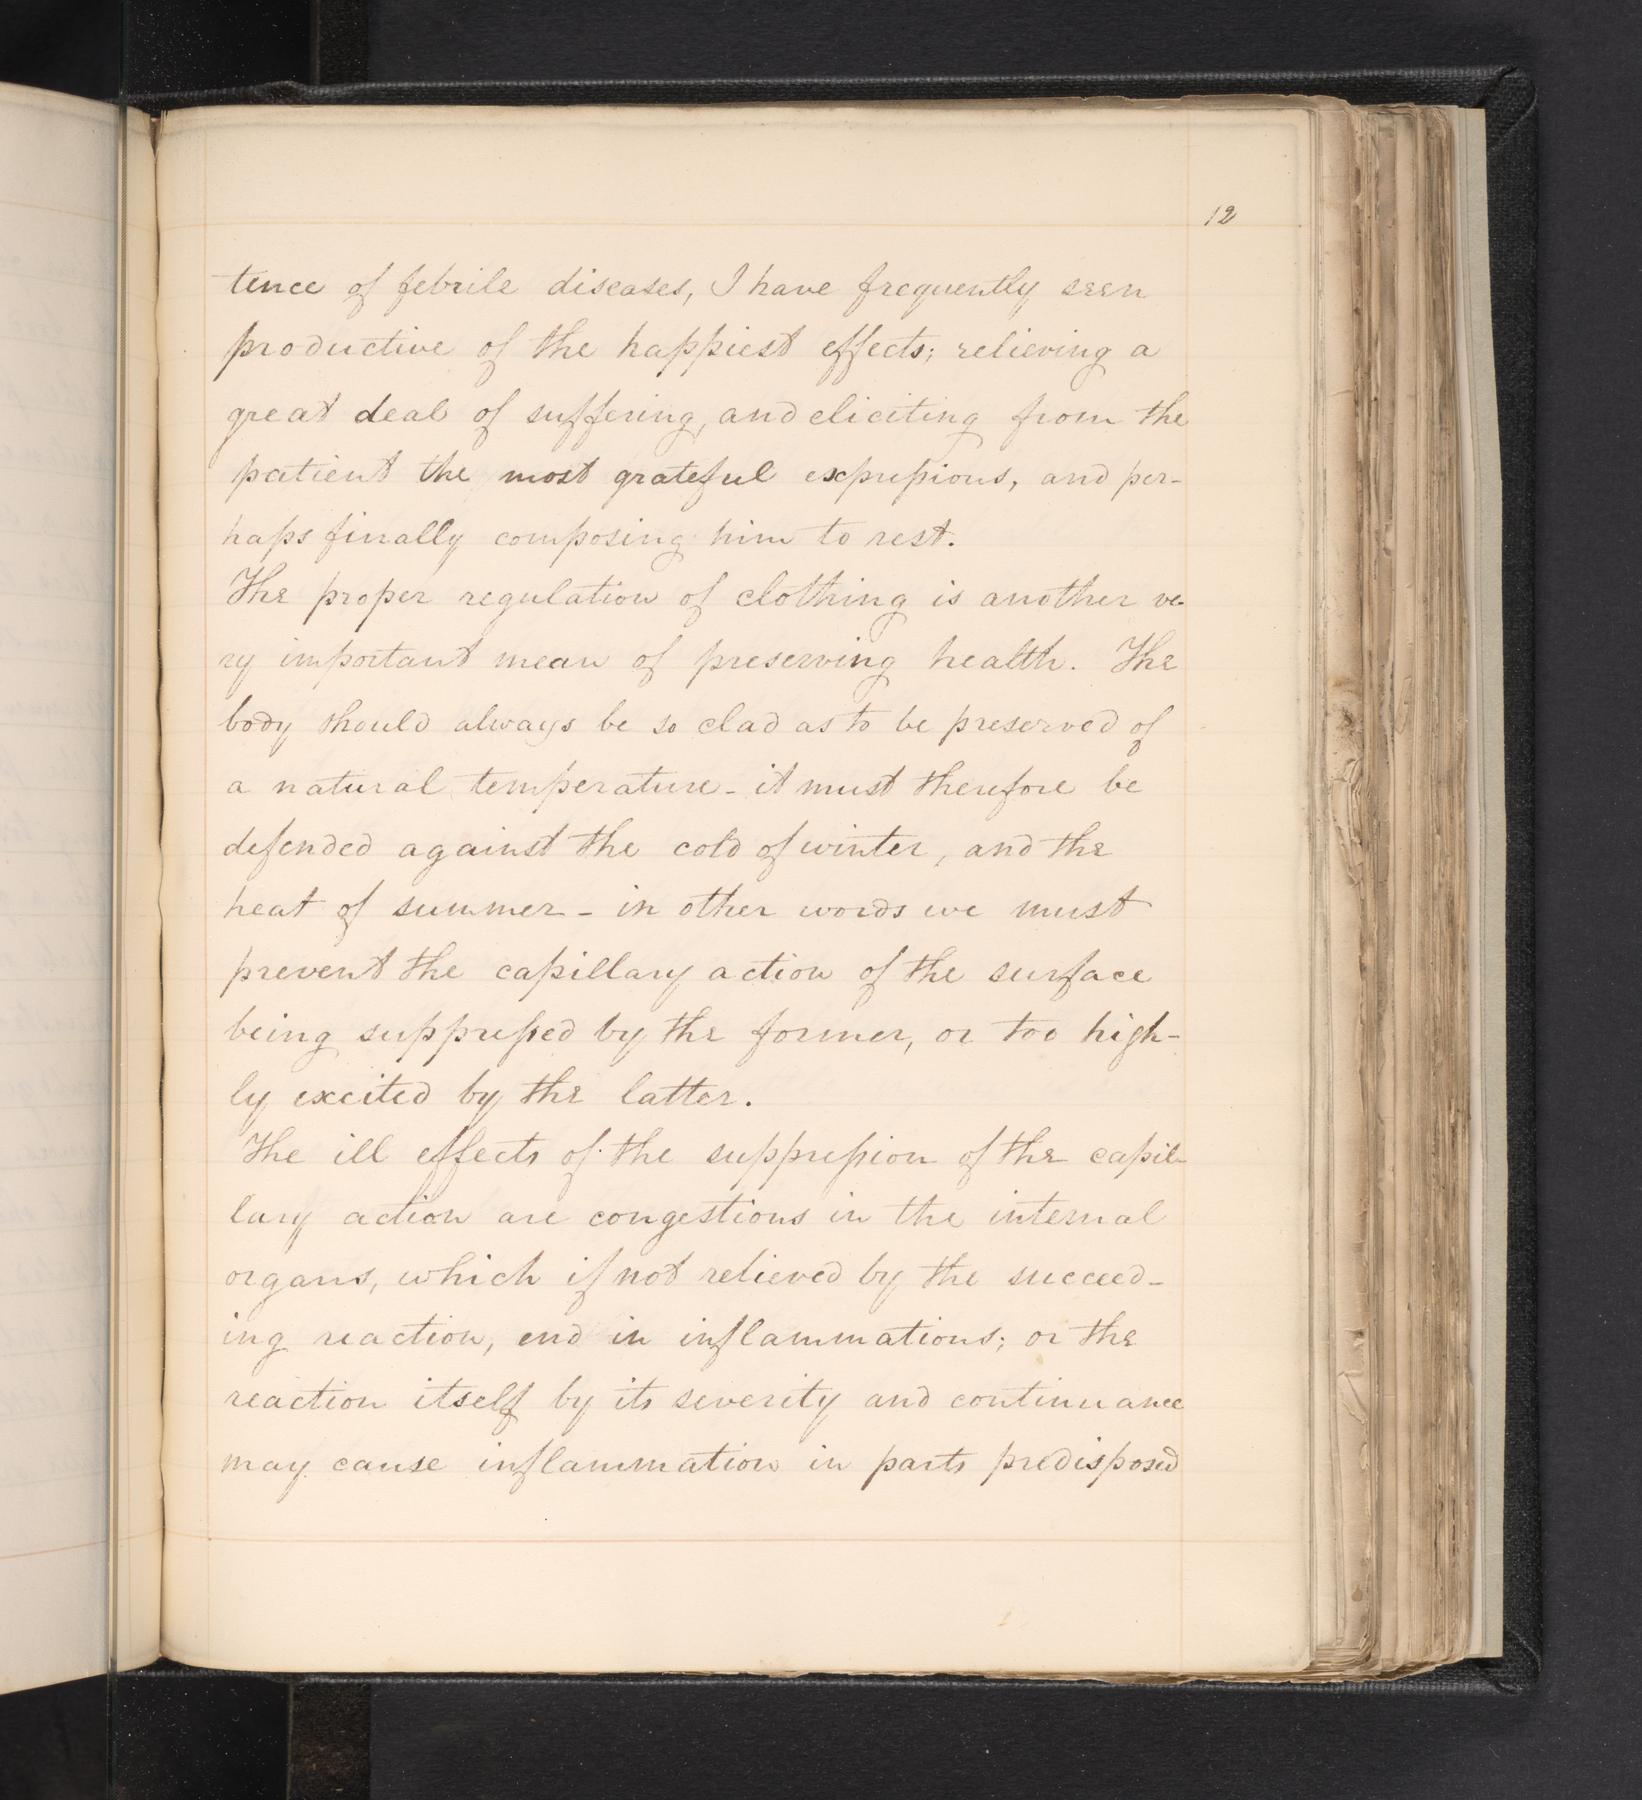 12
tence of febrile diseases, I have frequently seen
productive of the happiest effects; relieving a
great deal of suffering, and eliciting from the
patient the most grateful expreſsions, and per-
haps finally composing him to rest.
The proper regulation of clothing is another ve-
ry important mean of preserving health. The
body should always be so clad as to be preserved of
a natural temperature - it must therefore be
defended against the cold of winter, and the
heat of summer - in other words we must
prevent the capillary action of the surface
being suppreſsed by the former, or too high-
ly excited by the latter.
The ill effects of the suppreſsion of the capil-
lary action are congestions in the internal
organs, which if not relieved by the succeed-
ing reaction, end in inflammations; or the
reaction itself by its severity and continuance
may cause inflammation in parts predisposed